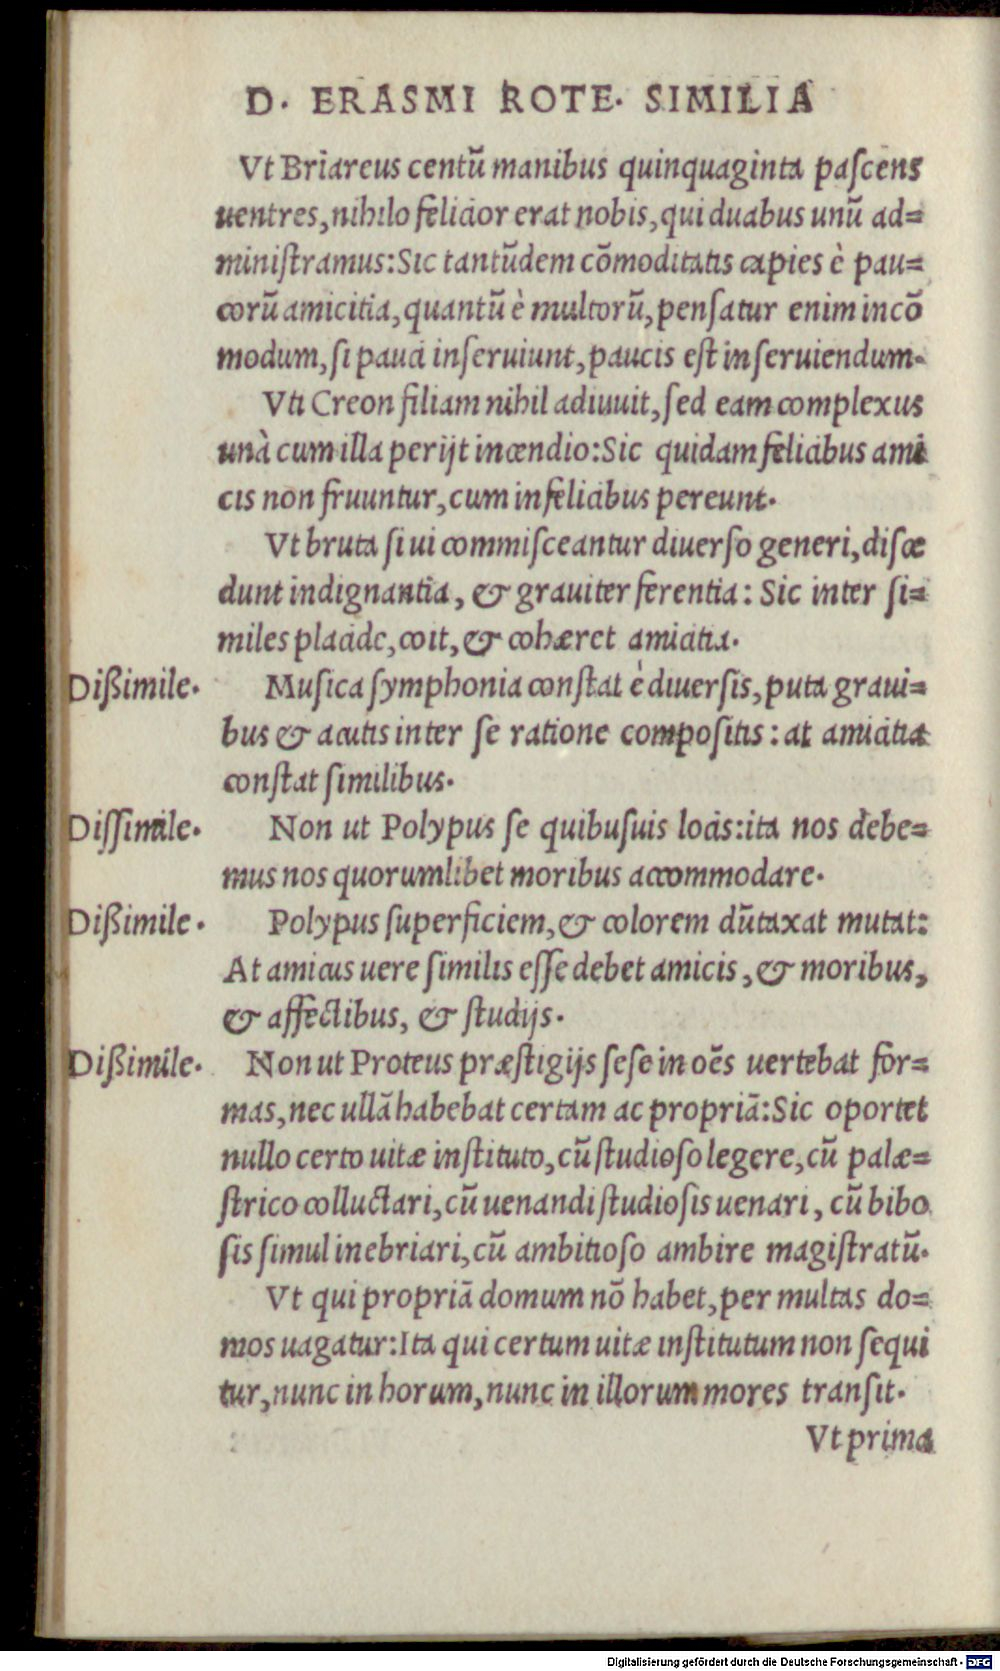 D. ERASMI ROTE. SIMILIA
Vt Briareus centũ manibus quinquaginta paſcens
uentres, nihilo felicior erat nobis, qui duabus unũ ad=
miniſtramus: Sic tantũdem cõmoditatis capies è pau=
corũ amicitia, quantũ è multorũ, penſatur enim incõ
modum, ſi pauci inſeruiunt, paucis eſt inſeruiendum.
Vti Creon filiam nihil adiuuit, ſed eam complexus
unà cum illa perijt incendio: Sic quidam felicibus ami
cis non fruuntur, cum infelicibus pereunt.
Vt bruta ſi ui commiſceantur diuerſo generi, diſce
dunt indignantia, & grauiter ferentia: Sic inter ſi=
miles placide, coit, & cohæret amicitia.
Dißimile. Muſica ſymphonia conſtat è diuerſis, puta graui=
bus & acutis inter ſe ratione compoſitis: at amicitia
conſtat ſimilibus.
Diſſimile. Non ut Polypus ſe quibuſuis locis: ita nos debe=
mus nos quorumlibet moribus accommodare.
Dißimile. Polypus ſuperficiem, & colorem dũtaxat mutat:
At amicus uere ſimilis eſſe debet amicis, & moribus,
& affectibus, & ſtudijs.
Dißimile. Non ut Proteus præſtigijs ſeſe in oẽs uertebat for=
mas, nec ullã habebat certam ac propriã: Sic oportet
nullo certo uitæ inſtituto, cũ ſtudioſo legere, cũ palæ=
ſtrico colluctari, cũ uenandi ſtudioſis uenari, cũ bibo
ſis ſimul inebriari, cũ ambitioſo ambire magiſtratũ.
Vt qui propriã domum nõ habet, per multas do=
mos uagatur: Ita qui certum uitæ inſtitutum non ſequi
tur, nunc in horum, nunc in illorum mores tranſit.
Vt prima
Digitalisierung gefördert durch die Deutsche Forschungsgemeinschaft - DFG